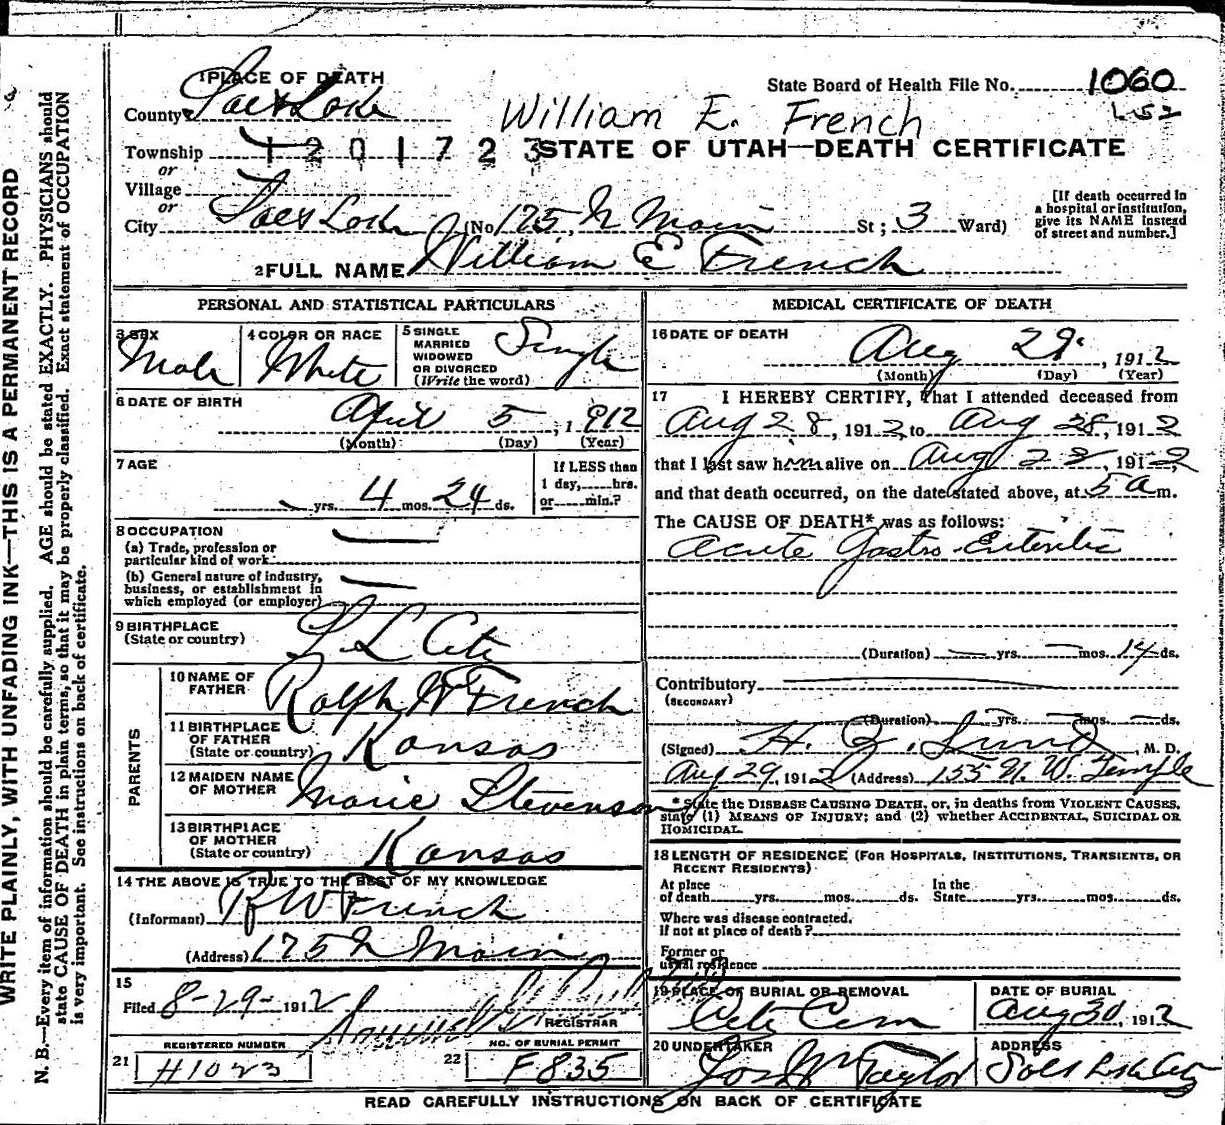 1 PLACE OF DEATH
State Board of Health File No. 1060
County Salt Lake
William E. French
Township 1201723 STATE OF UTAH—DEATH CERTIFICATE
or
Village
or
City Salt Lake (No 175 N Main St; 3 Ward)
[If death occurred in a hospital or institution, give its NAME instead of street and number.]
2 FULL NAME William E French
PERSONAL AND STATISTICAL PARTICULARS
3 SEX Male
4 COLOR OR RACE White
5 SINGLE MARRIED WIDOWED OR DIVORCED (Write the word) Single
6 DATE OF BIRTH April 5, 1912
(Month) (Day) (Year)
7 AGE
yrs. 4 mos. 24 ds.
If LESS than 1 day, hrs. or min.?
8 OCCUPATION
(a) Trade, profession or particular kind of work
(b) General nature of industry, business, or establishment in which employed (or employer)
9 BIRTHPLACE (State or country) S L City
PARENTS
10 NAME OF FATHER Ralph W French
11 BIRTHPLACE OF FATHER (State or country) Kansas
12 MAIDEN NAME OF MOTHER Marie Stevenson
13 BIRTHPLACE OF MOTHER (State or country) Kansas
14 THE ABOVE IS TRUE TO THE BEST OF MY KNOWLEDGE
(Informant) R W French
(Address) 175 N Main
15
Filed 8-29-1912
REGISTRAR
REGISTERED NUMBER
21 H1023
NO. OF BURIAL PERMIT
22 F835
MEDICAL CERTIFICATE OF DEATH
16 DATE OF DEATH Aug 29, 1912
(Month) (Day) (Year)
17 I HEREBY CERTIFY, that I attended deceased from
Aug 28, 1912, to Aug 28, 1912
that I last saw him alive on Aug 28, 1912,
and that death occurred, on the date stated above, at 5 a m.
The CAUSE OF DEATH* was as follows:
Acute Gastro-Enteritis
(Duration) yrs. mos. 14 ds.
Contributory
(SECONDARY)
(Duration) yrs. mos. ds.
(Signed) H. Z. Lund, M. D.
Aug 29, 1912 (Address) 155 N. W. Temple
*State the DISEASE CAUSING DEATH, or, in deaths from VIOLENT CAUSES, state (1) MEANS OF INJURY; and (2) whether ACCIDENTAL, SUICIDAL OR HOMICIDAL.
18 LENGTH OF RESIDENCE (FOR HOSPITALS, INSTITUTIONS, TRANSIENTS, OR RECENT RESIDENTS)
At place of death yrs. mos. ds. In the State yrs. mos. ds.
Where was disease contracted, If not at place of death?
Former or usual residence
19 PLACE OF BURIAL OR REMOVAL City Cem
DATE OF BURIAL Aug 30, 1912
20 UNDERTAKER Jos Wm Taylor
ADDRESS Salt Lake City
READ CAREFULLY INSTRUCTIONS ON BACK OF CERTIFICATE
WRITE PLAINLY, WITH UNFADING INK—THIS IS A PERMANENT RECORD
N. B.—Every item of information should be carefully supplied. AGE should be stated EXACTLY. PHYSICIANS should
state CAUSE OF DEATH in plain terms, so that it may be properly classified. Exact statement of OCCUPATION
is very important. See instructions on back of certificate.